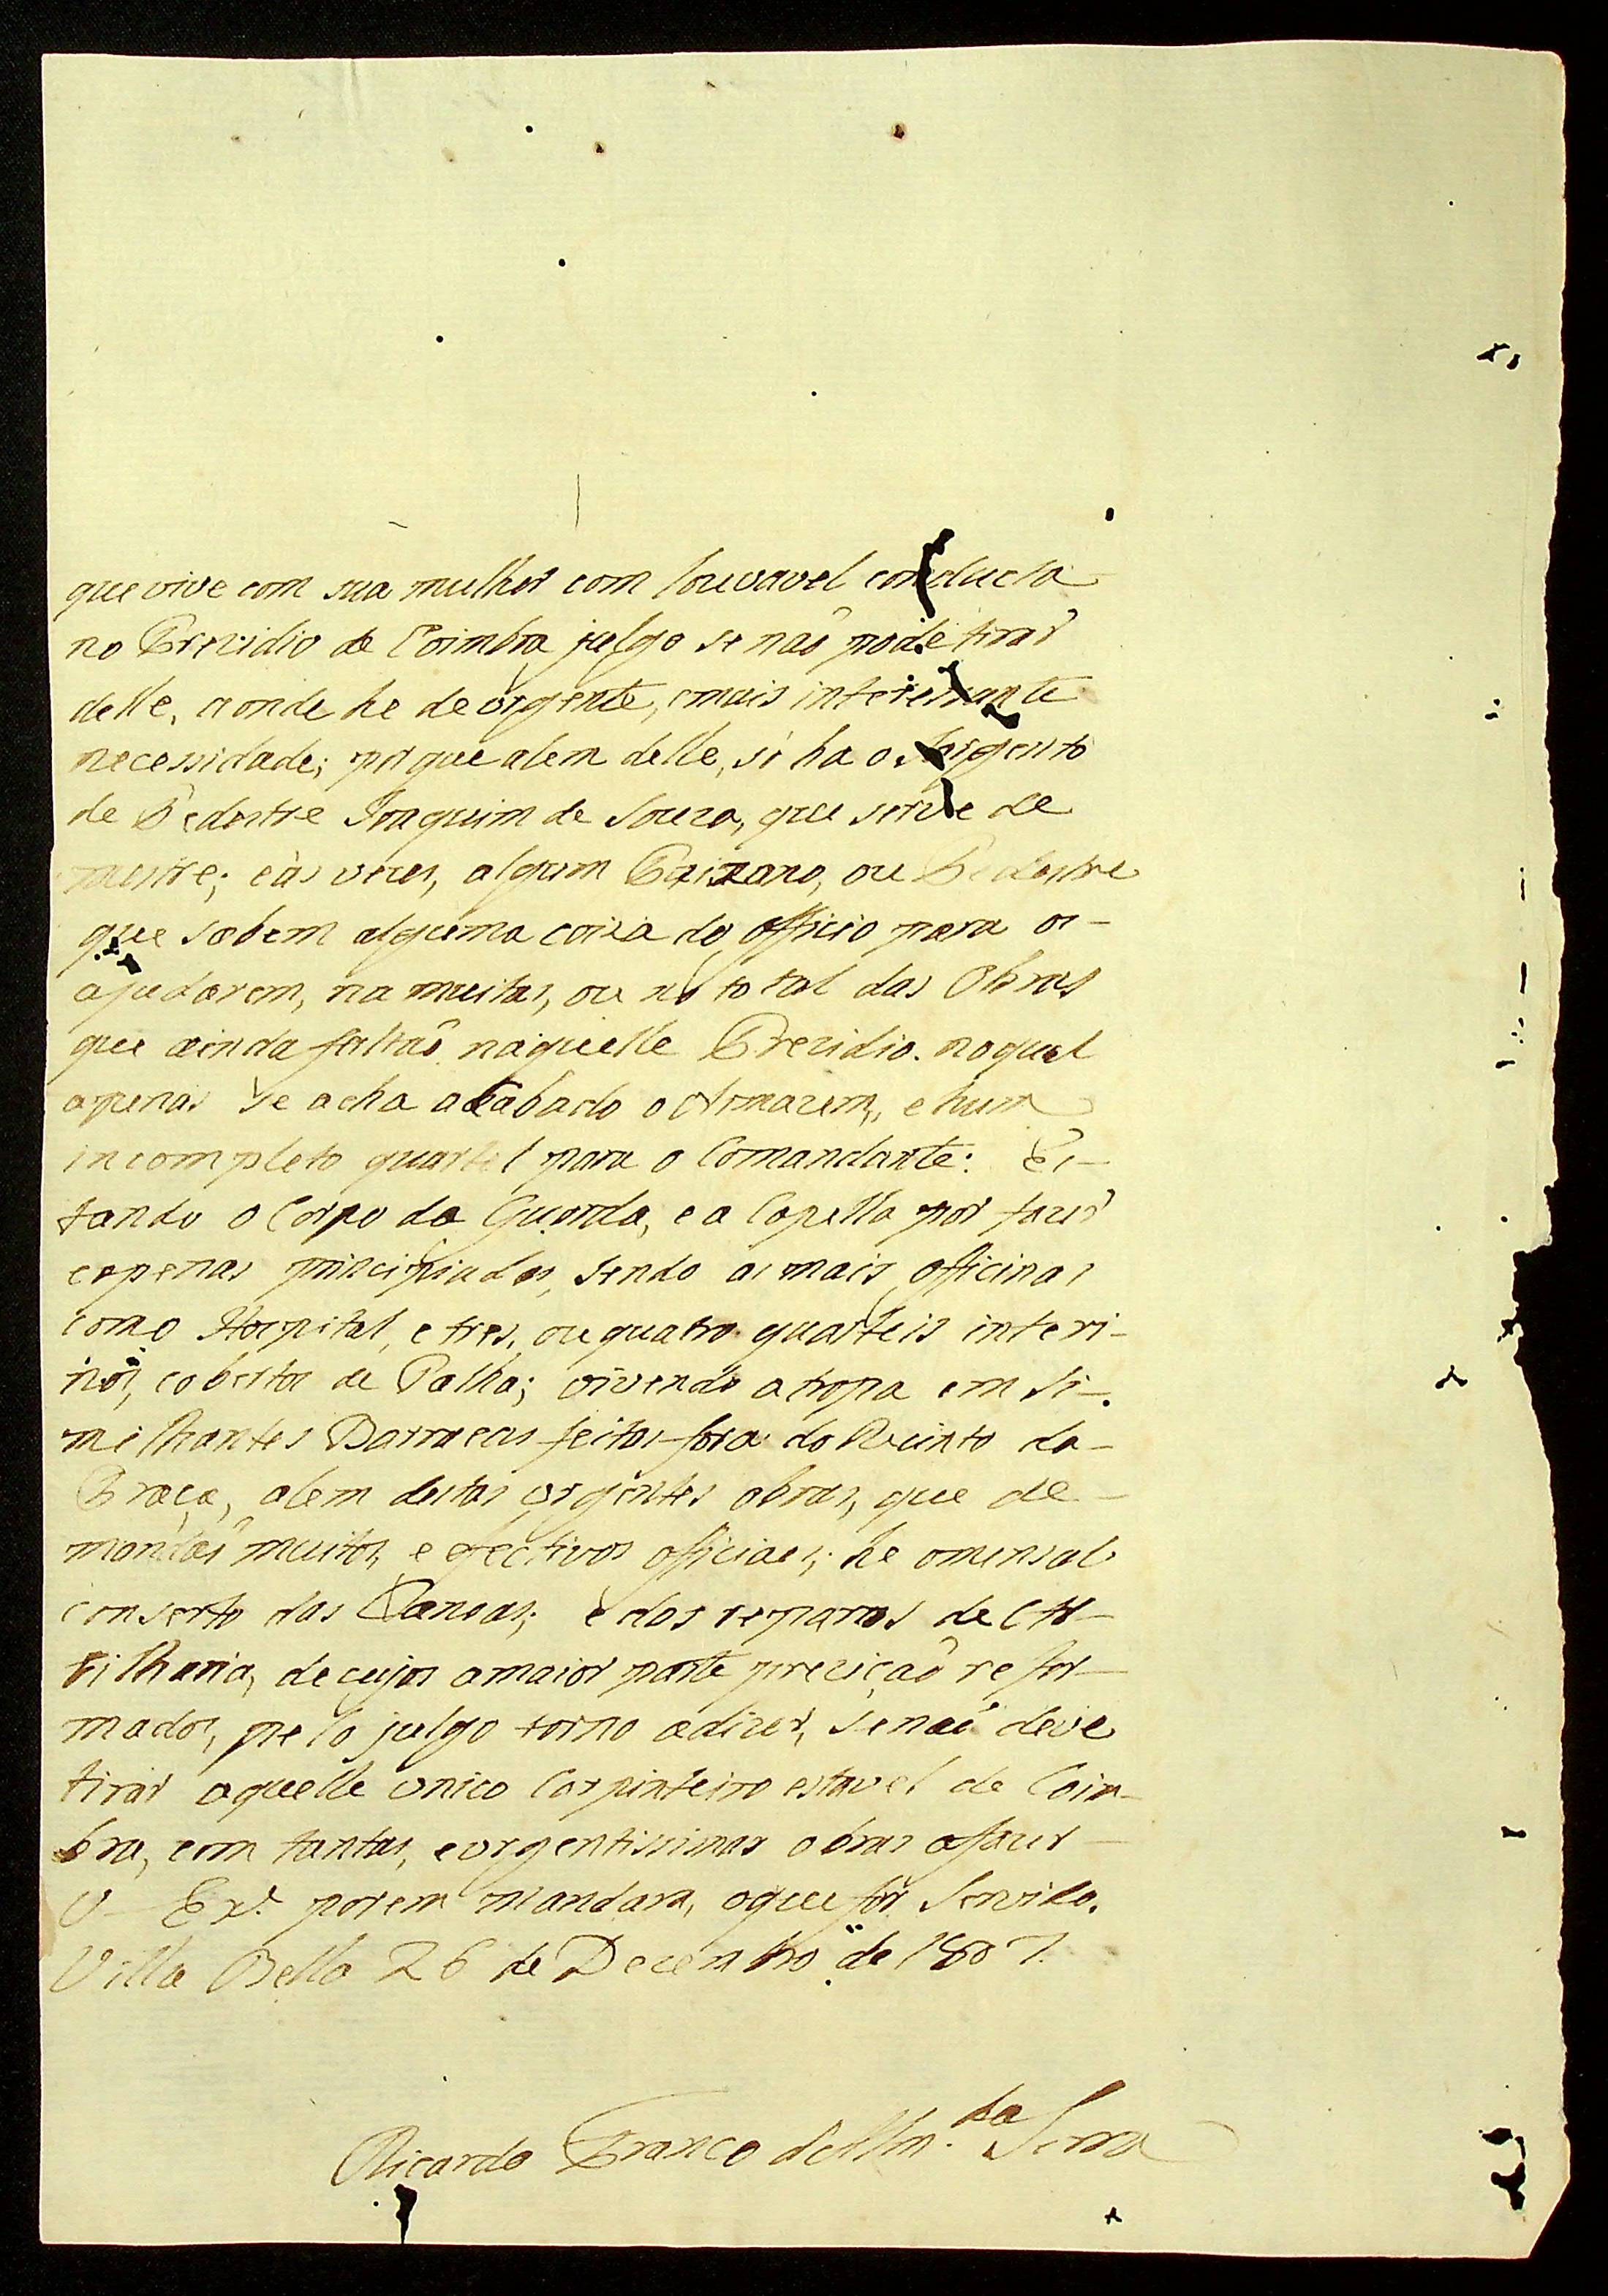 que vive com sua mulher com louvavel conducta
no Prezidio de Coimbra julgo se naõ pode tirar
delle, aonde he de urgente, emais interessante
necessidade; por que alem delle, só ha o Sargento
de Pedestre Joaquim de Souza, que serve de
mestre; e ás vezes, algum Paizano, ou Pedestre
que sabem alguma coiza do officio para o-
ajudarem, na muitas, ou no total das Obras
que ainda faltaõ naquelle Prezidio. no qual
apenas se acha acabado o Armazem, e hum
incompleto quartel para o Comandante: Es-
tando o Corpo da Guarda, e a Capella por fazer
e apenas principiados, sendo as mais officinas
como Hospital, e tres, ou quatro quarteis interi-
nos, cobertos de Palha; vivendo a tropa em si-
milhantes Barracas feitas fora do Recinto da-
Praça, alem destas urgentes obras, que de-
mandaõ muitos, e efectivos officiaes; he o mensal
conserto das Canoas; e dos reparos de Ar-
tilharia, de cujos a maior parte precizaõ refor-
mados, pelo julgo torno adizer, se naõ deve
tirar aquelle unico Carpinteiro estavel de Coim-
bra, com tantas, e urgentissimas obras afazer-
V Exª. porem mandara, o que for servido.
Villa Bella 26 de Decembro de 1807.
Ricardo Franco de Alm.da Serra